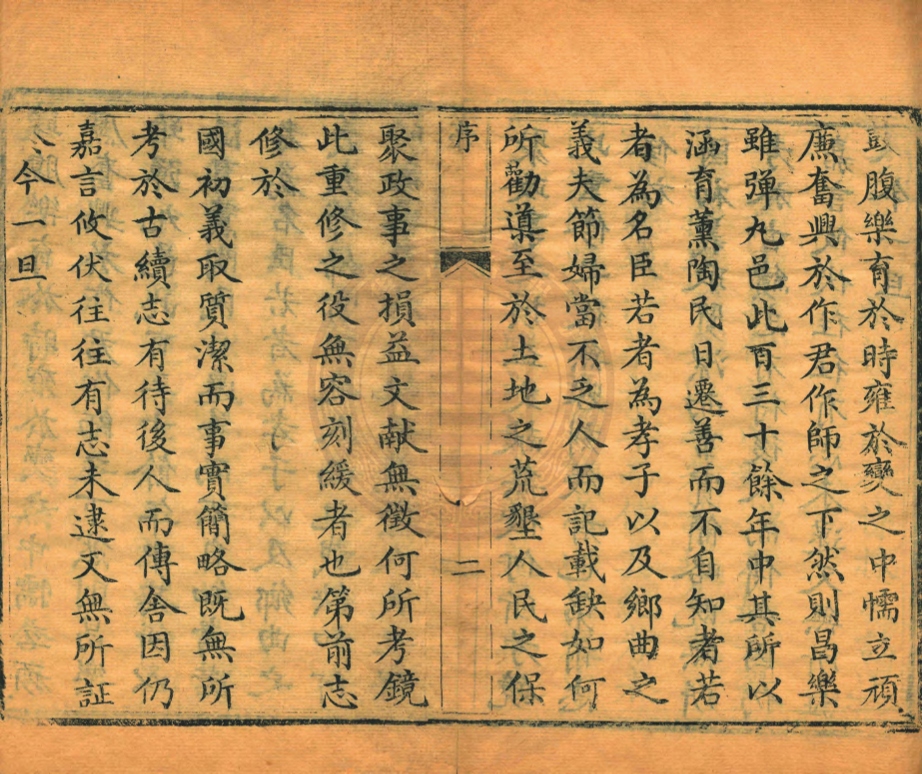 鼓腹樂育於時雍於變之中懦立頑
廉奮興於作君作師之下然則昌樂
雖彈丸邑此百三十餘年中其所以
涵育薰陶民日遷善而不自知者若
者為名臣若者為孝子以及鄉曲之
義夫節婦當不乏人而記載缺如何
所勸導至於土地之荒墾人民之保
序
二
聚政事之損益文献無徵何所考鏡
此重修之役無容刻緩者也第前志
修於
國初義取質潔而事實簡略既無所
考於古續志有待後人而傳舍因仍
嘉言攸伏往往有志未逮又無所証
於今一旦